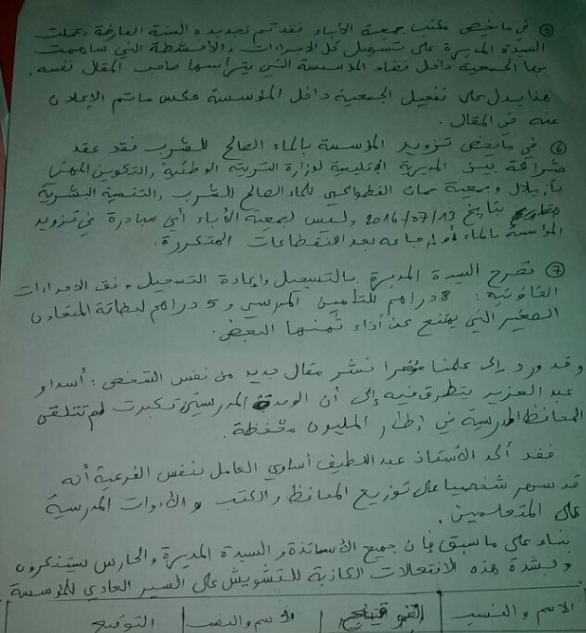 ⑤ في ما يخص مكتب جمعية الأباء فقد تم تجديده السنة الفارطة وعملت
السيدة المديرة على تسهيل كل الاجراءات والأنشطة التي ساهمت
بها الجمعية داخل فضاء المؤسسة التي يترأسها صاحب المقال نفسه.
هذا يدل على تفعيل الجمعية داخل المؤسسة عكس ما تم الإعلان
عنه في المقال.
⑥ في ما يخص تزويد المؤسسة بالماء الصالح للشرب فقد عقد
شراكة بين المديرية الإقليمية لوزارة التربية الوطنية والتكوين المهني
بأزيلال وجمعية للماء الصالح للشرب والتنمية البشرية
بتاريخ 2016/07/13 وليس لجمعية الأباء أي مبادرة في تزويد
المؤسسة بالماء أو إرجاعه بعد الانقطاعات المتكررة.
⑦ تصرح السيدة المديرة بالتسجيل وإعادة التسجيل وفق الاجراءات
القانونية: 8 دراهم للتأمين المدرسي و 5 دراهم لبطاقة المتعاون
الصغير التي يمتنع عن أداء ثمنها البعض.
وقد ورد إلى علمنا مؤخرا نشر مقال جديد من نفس الشخص: أسداو
عبد العزيز يتطرق فيه إلى أن الوحدة المدرسية تكبدت لم تتلقى
المحافظ المدرسية في إطار المليون محفظة.
فقد أكد الأستاذ عبد اللطيف العامل بنفس الفرعية أنه
قد سهر شخصيا على توزيع المحافظ والكتب والأدوات المدرسية
على المتعلمين.
بناء على ما سبق فإن جميع الأساتذة والسيدة المديرة والحارس يستنكرون
وبشدة هذه الانتحالات الكاذبة للتشويش على السير العادي للمؤسسة
الاسم والنسب التوقيع الاسم والنسب التوقيع